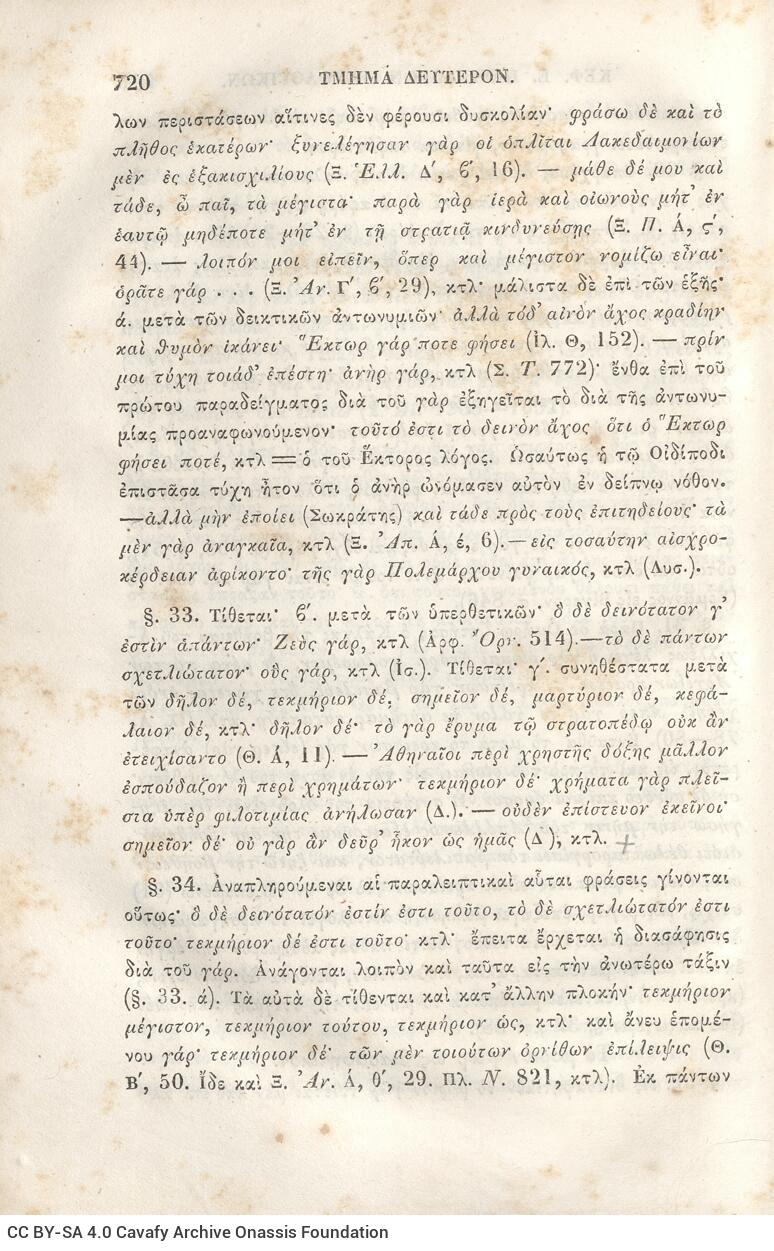 720 ΤΜΗΜΑ ΔΕΥΤΕΡΟΝ.
λων περιστάσεων αἵτινες δὲν φέρουσι δυσκολίαν· φράσω δὲ καὶ τὸ
πλῆθος ἑκατέρων· ξυνελέγησαν γὰρ οἱ ὁπλῖται Λακεδαιμονίων
μὲν ἐς ἑξακισχιλίους (Ξ. Ἑλλ. Δ΄, ϐ΄, 16). — μάθε δέ μου καὶ
τάδε, ὦ παῖ, τὰ μέγιστα· παρὰ γὰρ ἱερὰ καὶ οἰωνοὺς μήτ᾽ ἐν
ἑαυτῷ μηδέποτε μήτ᾽ ἐν τῇ στρατιᾷ κινδυνεύσῃς (Ξ. Π. Ά, ς΄,
44). — λοιπόν μοι εἰπεῖν, ὅπερ καὶ μέγιστον νομίζω εἶναι·
ὁρᾶτε γάρ . . . (Ξ. Ἀν. Γ΄, ϐ΄, 29), κτλ· μάλιστα δὲ ἐπὶ τῶν ἑξῆς·
ά. μετὰ τῶν δεικτικῶν ἀντωνυμιῶν· ἀλλὰ τόδ᾽ αἰνὸν ἄχος κραδίην
καὶ θυμὸν ἱκάνει· Ἕκτωρ γάρ ποτε φήσει (Ἰλ. Θ, 152). — πρίν
μοι τύχη τοιάδ᾽ ἐπέστη· ἀνὴρ γάρ, κτλ (Σ. Τ. 772)· ἔνθα ἐπὶ τοῦ
πρώτου παραδείγματος διὰ τοῦ γὰρ ἐξηγεῖται τὸ διὰ τῆς ἀντωνυ-
μίας προαναφωνούμενον· τοῦτό ἐστι τὸ δεινὸν ἄχος ὅτι ὁ Ἕκτωρ
φήσει ποτέ, κτλ = ὁ τοῦ Ἕκτορος λόγος. Ὡσαύτως ἡ τῷ Οἰδίποδι
ἐπιστᾶσα τύχη ἦτον ὅτι ὁ ἀνὴρ ὠνόμασεν αὐτὸν ἐν δείπνῳ νόθον.
—ἀλλὰ μὴν ἐποίει (Σωκράτης) καὶ τάδε πρὸς τοὺς ἐπιτηδείους· τὰ
μὲν γὰρ ἀναγκαῖα, κτλ (Ξ. Ἀπ. Ά, έ, 6).—εἰς τοσαύτην αἰσχρο-
κέρδειαν ἀφίκοντο· τῆς γὰρ Πολεμάρχου γυναικός, κτλ (Λυσ.).
§. 33. Τίθεται· ϐ΄. μετὰ τῶν ὑπερθετικῶν· ὃ δὲ δεινότατον γ᾽
ἐστὶν ἁπάντων· Ζεὺς γάρ, κτλ (Ἀρφ. Ὄρν. 514).—τὸ δὲ πάντων
σχετλιώτατον· οὓς γάρ, κτλ (Ἰσ.). Τίθεται· γ΄. συνηθέστατα μετὰ
τῶν δῆλον δέ, τεκμήριον δέ, σημεῖον δέ, μαρτύριον δέ, κεφά-
λαιον δέ, κτλ· δῆλον δέ· τὸ γὰρ ἔρυμα τῷ στρατοπέδῳ οὐκ ἂν
ἐτειχίσαντο (Θ. Ά, 11). — Ἀθηναῖοι περὶ χρηστῆς δόξης μᾶλλον
ἐσπούδαζον ἢ περὶ χρημάτων· τεκμήριον δέ· χρήματα γὰρ πλεῖ-
στα ὑπὲρ φιλοτιμίας ἀνήλωσαν (Δ.). — οὐδὲν ἐπίστευον ἐκεῖνοι·
σημεῖον δέ· οὐ γὰρ ἂν δεῦρ᾽ ἧκον ὡς ἡμᾶς (Δ ), κτλ. +
§. 34. Ἀναπληρούμεναι αἱ παραλειπτικαὶ αὗται φράσεις γίνονται
οὕτως· ὃ δὲ δεινότατόν ἐστίν ἐστι τοῦτο, τὸ δὲ σχετλιώτατόν ἐστι
τοῦτο· τεκμήριον δέ ἐστι τοῦτο· κτλ· ἔπειτα ἔρχεται ἡ διασάφησις
διὰ τοῦ γάρ. Ἀνάγονται λοιπὸν καὶ ταῦτα εἰς τὴν ἀνωτέρω τάξιν
(§. 33. ά). Τὰ αὐτὰ δὲ τίθενται καὶ κατ᾽ ἄλλην πλοκήν· τεκμήριον
μέγιστον, τεκμήριον τούτου, τεκμήριον ὡς, κτλ· καὶ ἄνευ ἑπομέ-
νου γάρ· τεκμήριον δέ· τῶν μὲν τοιούτων ὀρνίθων ἐπίλειψις (Θ.
Β΄, 50. Ἴδε καὶ Ξ. Ἀν. Ά, θ΄, 29. Πλ. Ν. 821, κτλ). Ἐκ πάντων
CC BY-SA 4.0 Cavafy Archive Onassis Foundation